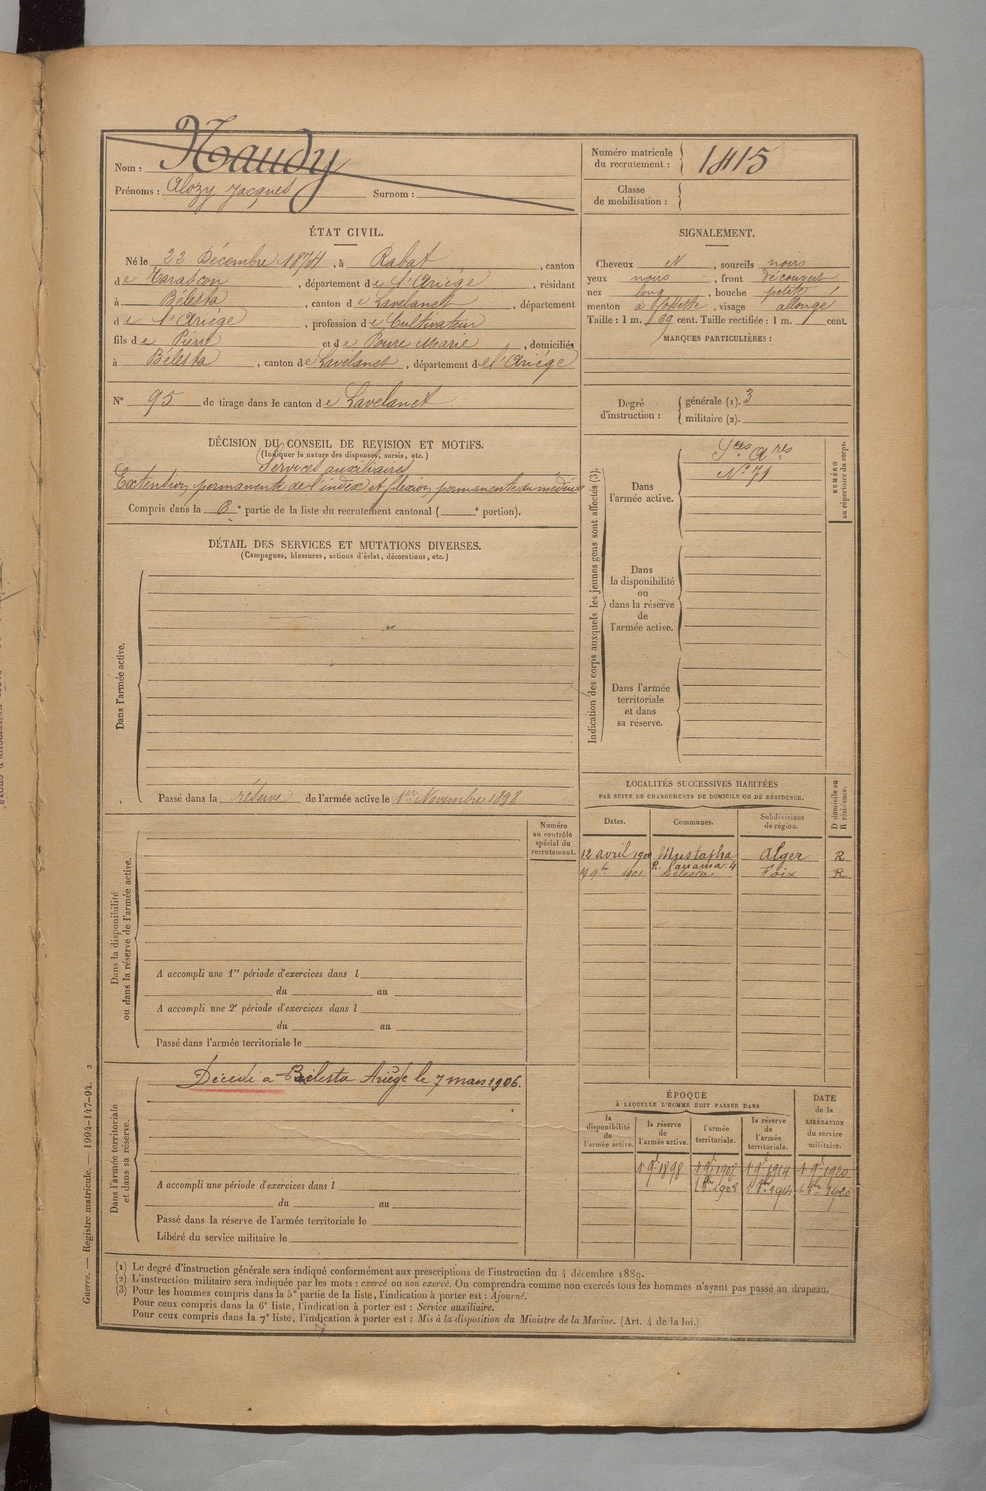 Nom : Naudy
Prénoms : Alozy Jacques Surnom :
Numéro matricule du recrutement : 1415
Classe de mobilisation :
ÉTAT CIVIL.
Né le 22 Décembre 1874, à Rabat, canton
de Tarascon, département de l'Ariége, résidant
à Bélesta, canton de Lavelanet, département
de l'Ariége, profession de Cultivateur
fils de Pierre et de Marie, domiciliés
à Bélesta, canton de Lavelanet, département de l'Ariége
N° 95 de tirage dans le canton de Lavelanet
SIGNALEMENT.
Cheveux N, sourcils noirs
yeux noirs, front découvert
nez long, bouche petite
menton à fossette, visage allongé
Taille : 1 m. 69 cent. Taille rectifiée : 1 m. cent.
MARQUES PARTICULIÈRES :
Degré d'instruction : générale (1). 3
militaire (2).
DÉCISION DU CONSEIL DE REVISION ET MOTIFS.
(Indiquer la nature des dispenses, sursis, etc.)
Services auxiliaires
Extension permanente de l'index et flexion permanente du medius
Compris dans la 6e partie de la liste du recrutement cantonal ( e portion).
DÉTAIL DES SERVICES ET MUTATIONS DIVERSES.
(Campagnes, blessures, actions d'éclat, décorations, etc.)
Dans l'armée active.
Passé dans la réserve de l'armée active le 1er Novembre 1898
Indication des corps auxquels les jeunes gens sont affectés (3).
Dans l'armée active.
Sces Ares
N° 71
NUMÉRO au répertoire du corps.
Dans la disponibilité ou dans la réserve de l'armée active.
Dans l'armée territoriale et dans sa réserve.
LOCALITÉS SUCCESSIVES HABITÉES
PAR SUITE DE CHANGEMENTS DE DOMICILE OU DE RÉSIDENCE.
Dates. Communes. Subdivisions de région. D domicile ou R résidence.
12 avril 1900 Mustapha Alger R
R. Panama 4
9bre 1901 Bélesta Foix R
Dans la disponibilité ou dans la réserve de l'armée active.
Numéro au contrôle spécial du recrutement.
A accompli une 1re période d'exercices dans l
du au
A accompli une 2e période d'exercices dans l
du au
Passé dans l'armée territoriale le
Dans l'armée territoriale et dans sa réserve.
Décédé à Bélesta Ariége le 7 mars 1906.
A accompli une période d'exercices dans l
du au
Passé dans la réserve de l'armée territoriale le
Libéré du service militaire le
ÉPOQUE
À LAQUELLE L'HOMME DOIT PASSER DANS
la disponibilité de l'armée active. la réserve de l'armée active. l'armée territoriale. la réserve de l'armée territoriale. DATE de la LIBÉRATION du service militaire.
1 9bre 1898 1 9bre 1908 1 9bre 1914 1 9bre 1920
1 8bre 1908 1 8bre 1914 1 8bre 1920
(1) Le degré d'instruction générale sera indiqué conformément aux prescriptions de l'instruction du 4 décembre 1889.
(2) L'instruction militaire sera indiquée par les mots : exercé ou non exercé. On comprendra comme non exercés tous les hommes n'ayant pas passé au drapeau.
(3) Pour les hommes compris dans la 5e partie de la liste, l'indication à porter est : Ajourné.
Pour ceux compris dans la 6e liste, l'indication à porter est : Service auxiliaire.
Pour ceux compris dans la 7e liste, l'indication à porter est : Mis à la disposition du Ministre de la Marine. (Art. 4 de la loi.)
Guerre. — Registre matricule. — 1994-147-94. 2